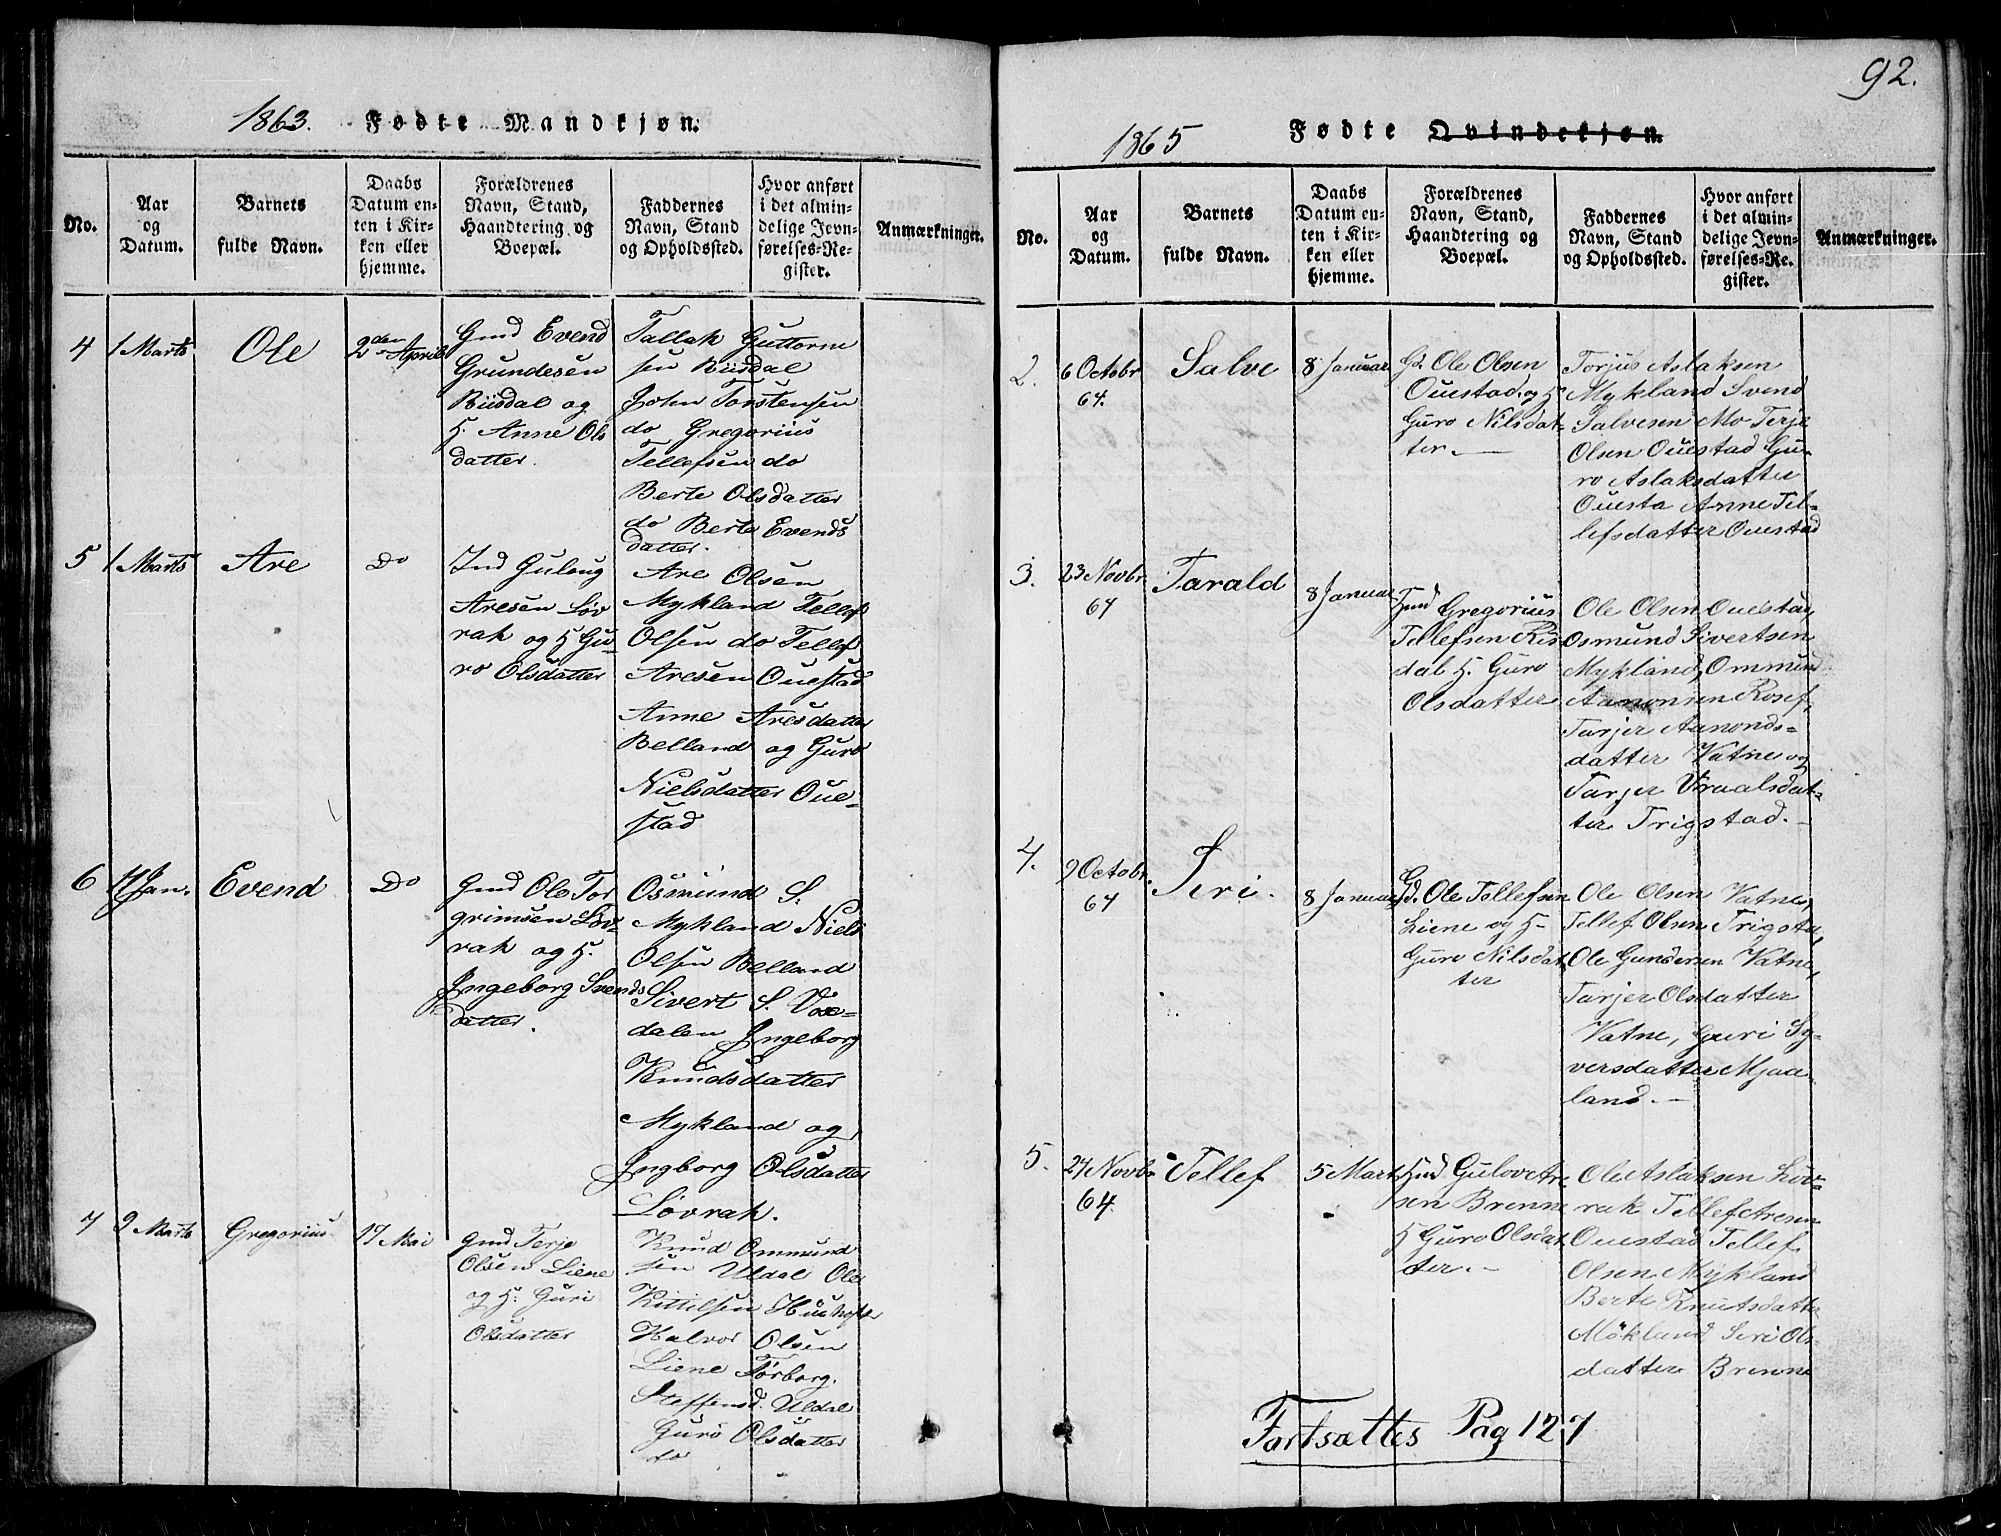 1863. Fødte Mandkjøn.
No.
Aar
og
Datum.
Barnets
fulde Navn.
Daabs
Datum en-
ten i Kir-
ken eller
hjemme.
Forældrenes
Navn, Stand,
Haandtering og
Boepæl.
Faddernes
Navn, Stand
og Opholdssted.
Hvor anført
i det almin-
delige Jevn-
førelses-Re-
gister.
Anmærkninger.
4
1 Marts
Ole
2den April
Gmd Evend
Grundesen
Risdal og
H. Anne Ols
datter.
Tallak Guttorm
sen Risdal
John Torstensen
do Gregorius
Tellefsen do
Berte Olsdatter
do Berte Evends
datter.
5
1 Marts
Are
Do
Ind Guloug
Aresen Løv
rak og H Gu-
ro Olsdatter
Are Olsen
Mykland Tellef
Olsen do Tellef
Aresen Ouestad
Anne Aresdatter
Belland og Guro
Nielsdatter Oue-
stad
6
Jan.
Evend
Do
Gmd Ole Tor
grimsen Løv-
rak og H.
Ingeborg Svends
datter.
Osmund S.
Mykland Niels
Olsen Belland
Sivert S. Vox-
dalen Ingeborg
Knudsdatter
Mykland og
Ingborg Olsdatter
Løvrak.
7
9 Marts
Gregorius
17 Mai
Gmd Terje
Olsen Liene
og H. Guri
Olsdatter
Knud Ommund
sen Uldal Ole
Kittilsen
Halvor Olsen
Liene Tørborg.
Steffensd. Uldal
Guro Olsdatter
do
92.
1865 Fødte Qvindekjøn.
No.
Aar
og
Datum.
Barnets
fulde Navn.
Daabs
Datum en-
ten i Kir-
ken eller
hjemme.
Forældrenes
Navn, Stand,
Haandtering og
Boepæl.
Faddernes
Navn, Stand
og Opholdssted.
Hvor anført
i det almin-
delige Jevn-
førelses-Re-
gister.
Anmærkninger.
2.
6 Octobr
64.
Salve
8 Januar
Gd. Ole Olsen
Ouestad og H
Guro Nilsdat-
ter.
Torjus Aslaksen
Mykland Svend
Salvesen Mo Terje
Olsen Ouestad Gu-
ro Aslaksdatter
Ouesta Anne Tel-
lefsdatter Ouestad
3.
23 Novbr
64
Tarald
8 Januar
Hmd Gregorius
Tellefsen Ris-
dal H. Guro
Olsdatter
Ole Olsen Ouestad,
Osmund Sivertsen
Mykland, Ommund
Aanonsen Rosef,
Tarjer Aanonds-
datter Vatne og
Tarjer Vraalsdat-
ter Trigstad.
4.
9 Octobr.
64
Siri.
8 Januar
Gd. Ole Tellefsen
Liene og H
Guro Nilsdat-
ter
Ole Olsen Vatne,
Tellef Olsen Trigstad,
Ole Gundersen Vatne,
Tarjer Olsdatter
Vatne, Guri Sy-
versdatter Mjaa-
land.
5.
24 Novbr
64.
Tellef
5 Mart
Hmd Gulov Are-
sen Brenne
H Guro Olsdat-
ter.
Ole Aslaksen Løv-
rak Tellef Aresen
Ouestad Tellef
Olsen Mykland
Berte Knutsdatter
Mökland Siri Ols-
datter Brenne
Fortsættes Pag 127